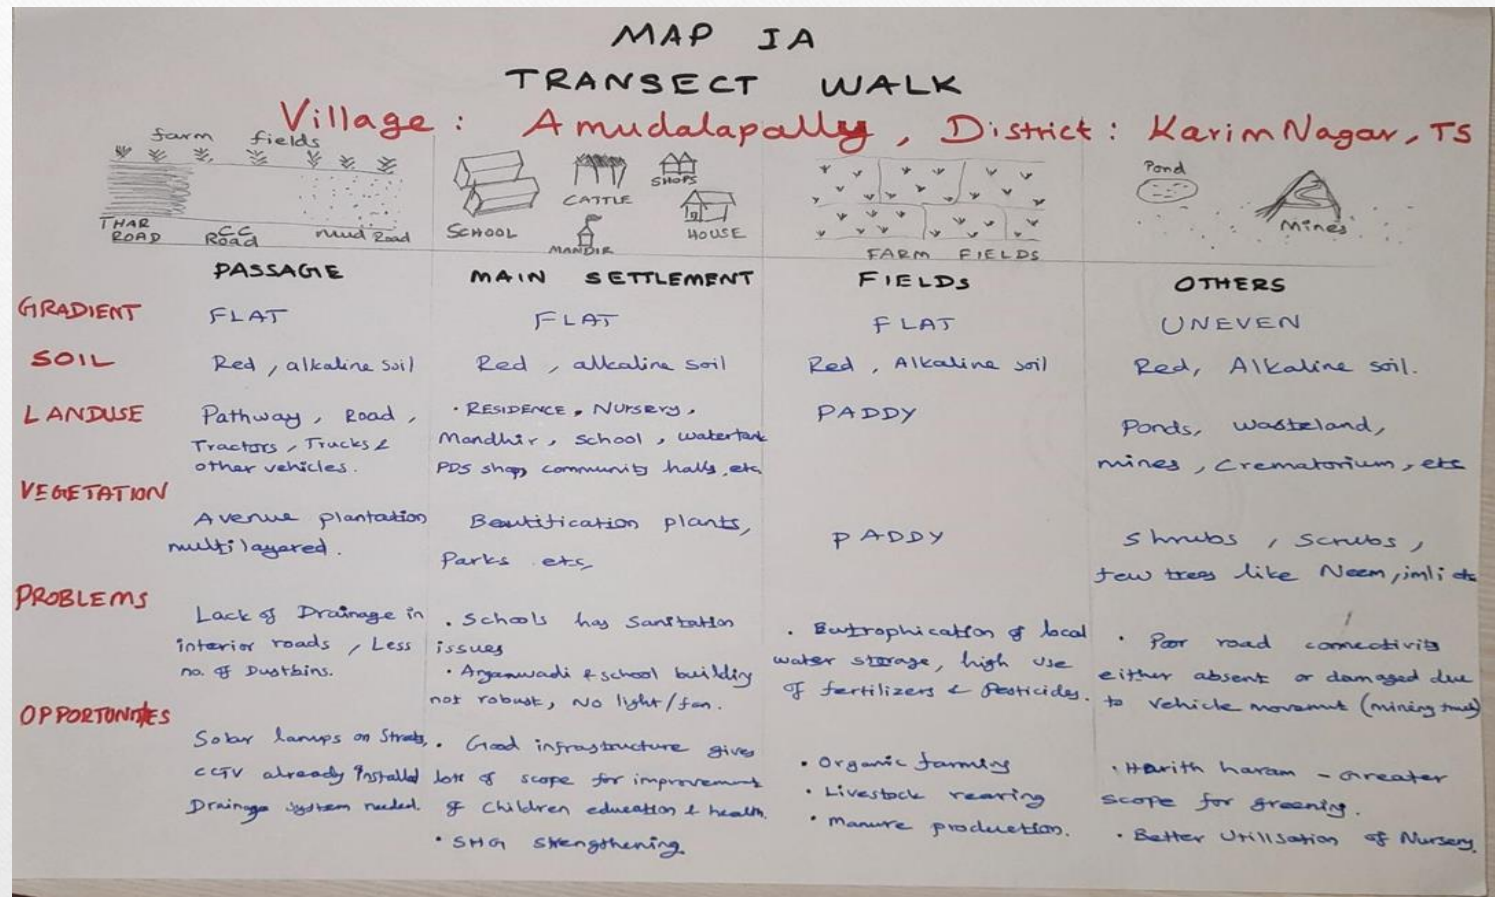 MAP IA
TRANSECT WALK
Village : Amudalapally , District : KarimNagar, TS
farm fields
THAR ROAD
CC Road
mud Road
SCHOOL
CATTLE
MANDIR
SHOPS
HOUSE
FARM FIELDS
Pond
Mines
PASSAGE
MAIN SETTLEMENT
FIELDS
OTHERS
GRADIENT
FLAT
FLAT
FLAT
UNEVEN
SOIL
Red , alkaline soil
Red , alkaline soil
Red , Alkaline soil
Red, Alkaline soil.
LANDUSE
Pathway , Road ,
Tractors , Trucks &
other vehicles.
• RESIDENCE , Nursery ,
Mandhir , school , watertank
PDS shop, community halls, etc
PADDY
Ponds, wasteland,
mines , Crematorium , etc
VEGETATION
Avenue plantation
multilayered.
Beautification plants,
Parks etc,
PADDY
Shrubs , scrubs ,
few trees like Neem, imli etc
PROBLEMS
Lack of Drainage in
interior roads , Less
no. of Dustbins.
• Schools has Sanitation
issues
• Anganwadi & school building
not robust, No light/fan.
• Eutrophication of local
water storage, high use
of fertilizers & Pesticides.
• Poor road connectivity
either absent or damaged due
to vehicle movemnt (mining truck)
OPPORTUNITES
Solar lamps on Streets,
CCTV already installed
Drainage System needed.
• Good infrastructure gives
lots of scope for improvement
of Children education & health.
• SHG strengthening.
• Organic farming
• Livestock rearing
• Manure production.
• Harith haram - Greater
scope for greening.
• Better Utilisation of Nursery.